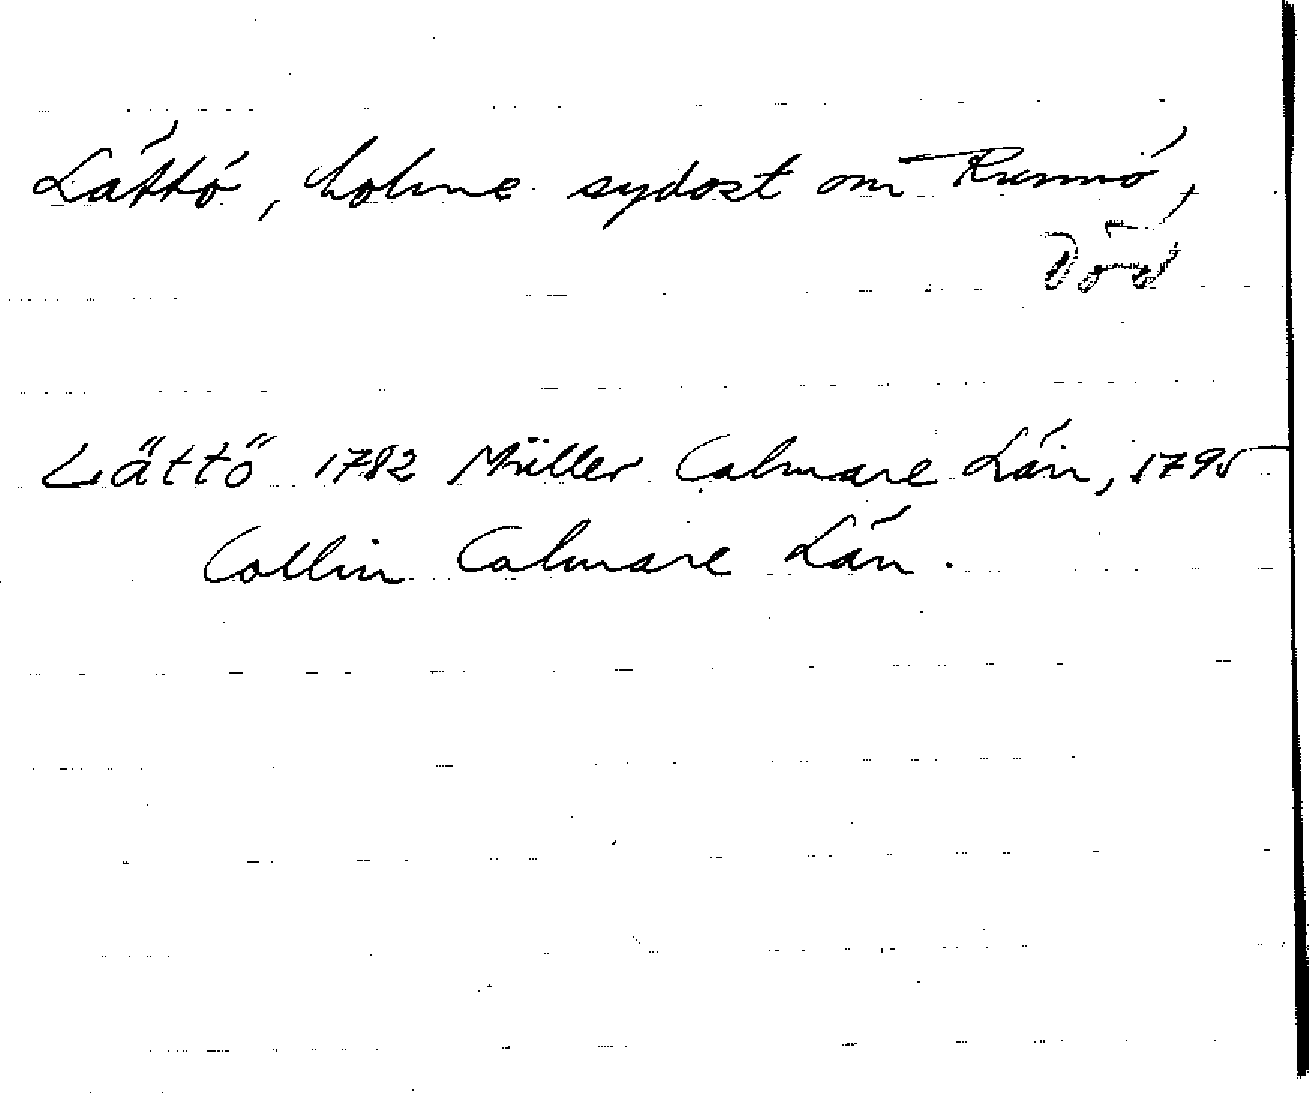 Lättö, holme sydost om Runnö,
Död
Lättö 1782 Müller Calmare Län, 1795
Collin Calmare Län.